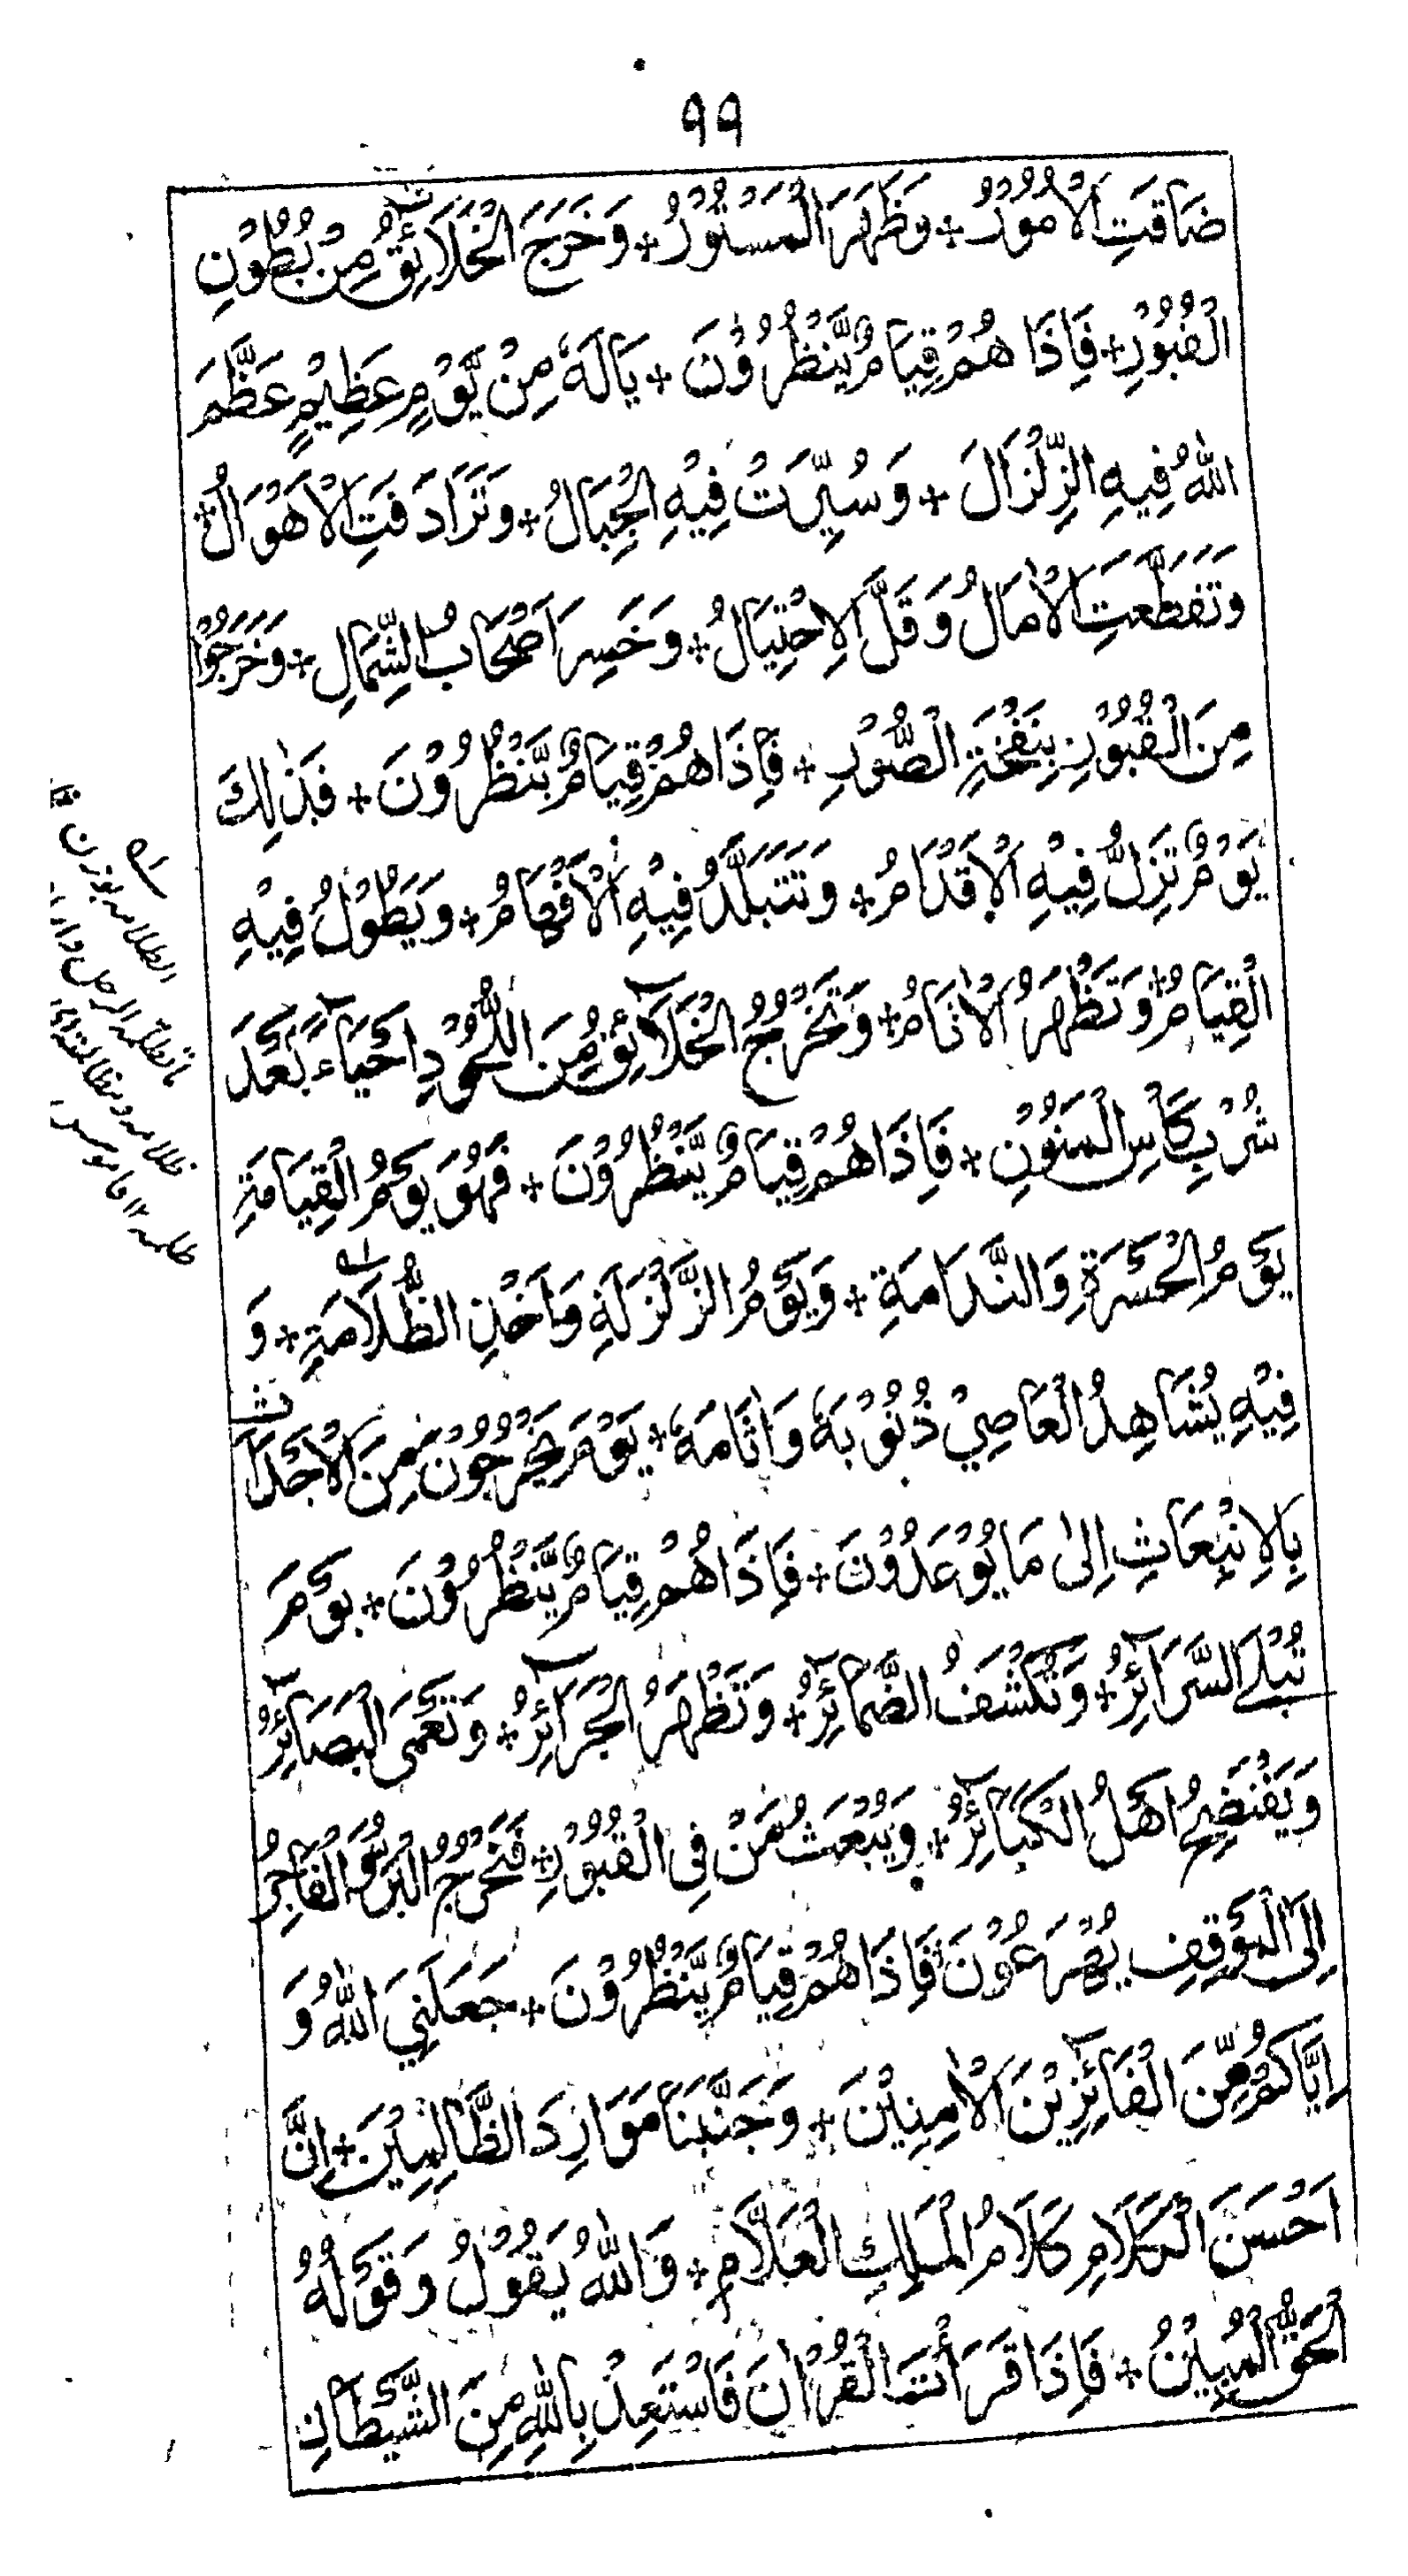 ٩٩
ضَاقَتِ الْاُمُوْرُ + وَظَهَرَ الْمَسْتُوْرُ + وَخَرَجَ الْخَلَائِقُ مِنْ بُطُوْنِ
الْقُبُوْرِ + فَاِذَا هُمْ قِيَامٌ يَّنْظُرُوْنَ + يَالَهٗ مِنْ يَّوْمٍ عَظِيْمٍ عَظَّمَ
اللّٰهُ فِيْهِ الزِّلْزَالَ + وَسُيِّرَتْ فِيْهِ الْجِبَالُ + وَتَرَادَفَتِ الْاَهْوَالُ +
وَتَقَطَّعَتِ الْاٰمَالُ وَقَلَّ الْاِحْتِيَالُ + وَخَسِرَ اَصْحَابُ الشِّمَالِ + وَخَرَجُوْا
مِنَ الْقُبُوْرِ بِنَفْخَةِ الصُّوْرِ + فَاِذَا هُمْ قِيَامٌ يَّنْظُرُوْنَ + فَذٰلِكَ
يَوْمٌ تَزِلُّ فِيْهِ الْاَقْدَامُ + وَتَتَبَلَّدُ فِيْهِ الْاَفْهَامُ + وَيَطُوْلُ فِيْهِ
الْقِيَامُ + وَتَظْهَرُ الْاٰثَامُ + وَتَخْرُجُ الْخَلَآئِقُ مِنَ اللُّحُوْدِ اَحْيَآءً بَعْدَ
شُرْبِ كَاْسِ الْمَنُوْنِ + فَاِذَا هُمْ قِيَامٌ يَّنْظُرُوْنَ + فَهُوَ يَوْمُ الْقِيَامَةِ
يَوْمُ الْحَسْرَةِ وَالنَّدَامَةِ + وَيَوْمُ الزَّلْزَلَةِ وَاَخْذِ الظُّلَامَةِ + وَ
فِيْهِ يُشَاهِدُ الْعَاصِيْ ذُنُوْبَهٗ وَاٰثَامَهٗ + يَوْمَ يَخْرُجُوْنَ مِنَ الْاَجْدَاثِ
بِالْاِنْبِعَاثِ اِلٰى مَا يُوْعَدُوْنَ + فَاِذَا هُمْ قِيَامٌ يَّنْظُرُوْنَ + يَوْمَ
تُبْلَى السَّرَآئِرُ + وَتُكْشَفُ الضَّمَآئِرُ + وَتَظْهَرُ الْجَرَآئِرُ + وَتَعْمَى الْبَصَآئِرُ
وَيَفْتَضِحُ اَهْلُ الْكَبَآئِرِ + وَيُبْعَثُ مَنْ فِى الْقُبُوْرِ + فَتَخْرُجُ الْبَرُّ وَالْفَاجِرُ
اِلَى الْمَوْقِفِ يُهْرَعُوْنَ + فَاِذَا هُمْ قِيَامٌ يَّنْظُرُوْنَ + جَعَلَنِيَ اللّٰهُ وَ
اِيَّاكُمْ مِّنَ الْفَائِزِيْنَ الْاٰمِنِيْنَ + وَجَنَّبَنَا مَوَارِدَ الظَّالِمِيْنَ + اِنَّ
اَحْسَنَ الْكَلَامِ كَلَامُ الْمَلِكِ الْعَلَّامِ + وَاللّٰهُ يَقُوْلُ وَقَوْلُهُ
الْحَقُّ الْمُبِيْنُ + فَاِذَا قَرَأْتَ الْقُرْاٰنَ فَاسْتَعِذْ بِاللّٰهِ مِنَ الشَّيْطَانِ